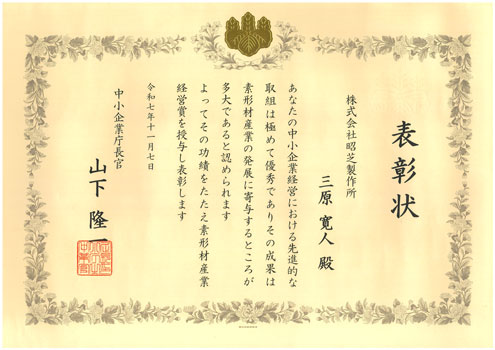 表彰状
株式会社昭芝製作所
三原寛人 殿
あなたの中小企業経営における先進的な
取組は極めて優秀でありその成果は
素形材産業の発展に寄与するところが
多大であると認められます
よってその功績をたたえ素形材産業
経営賞を授与し表彰します
令和七年十一月七日
中小企業庁長官
山下 隆一